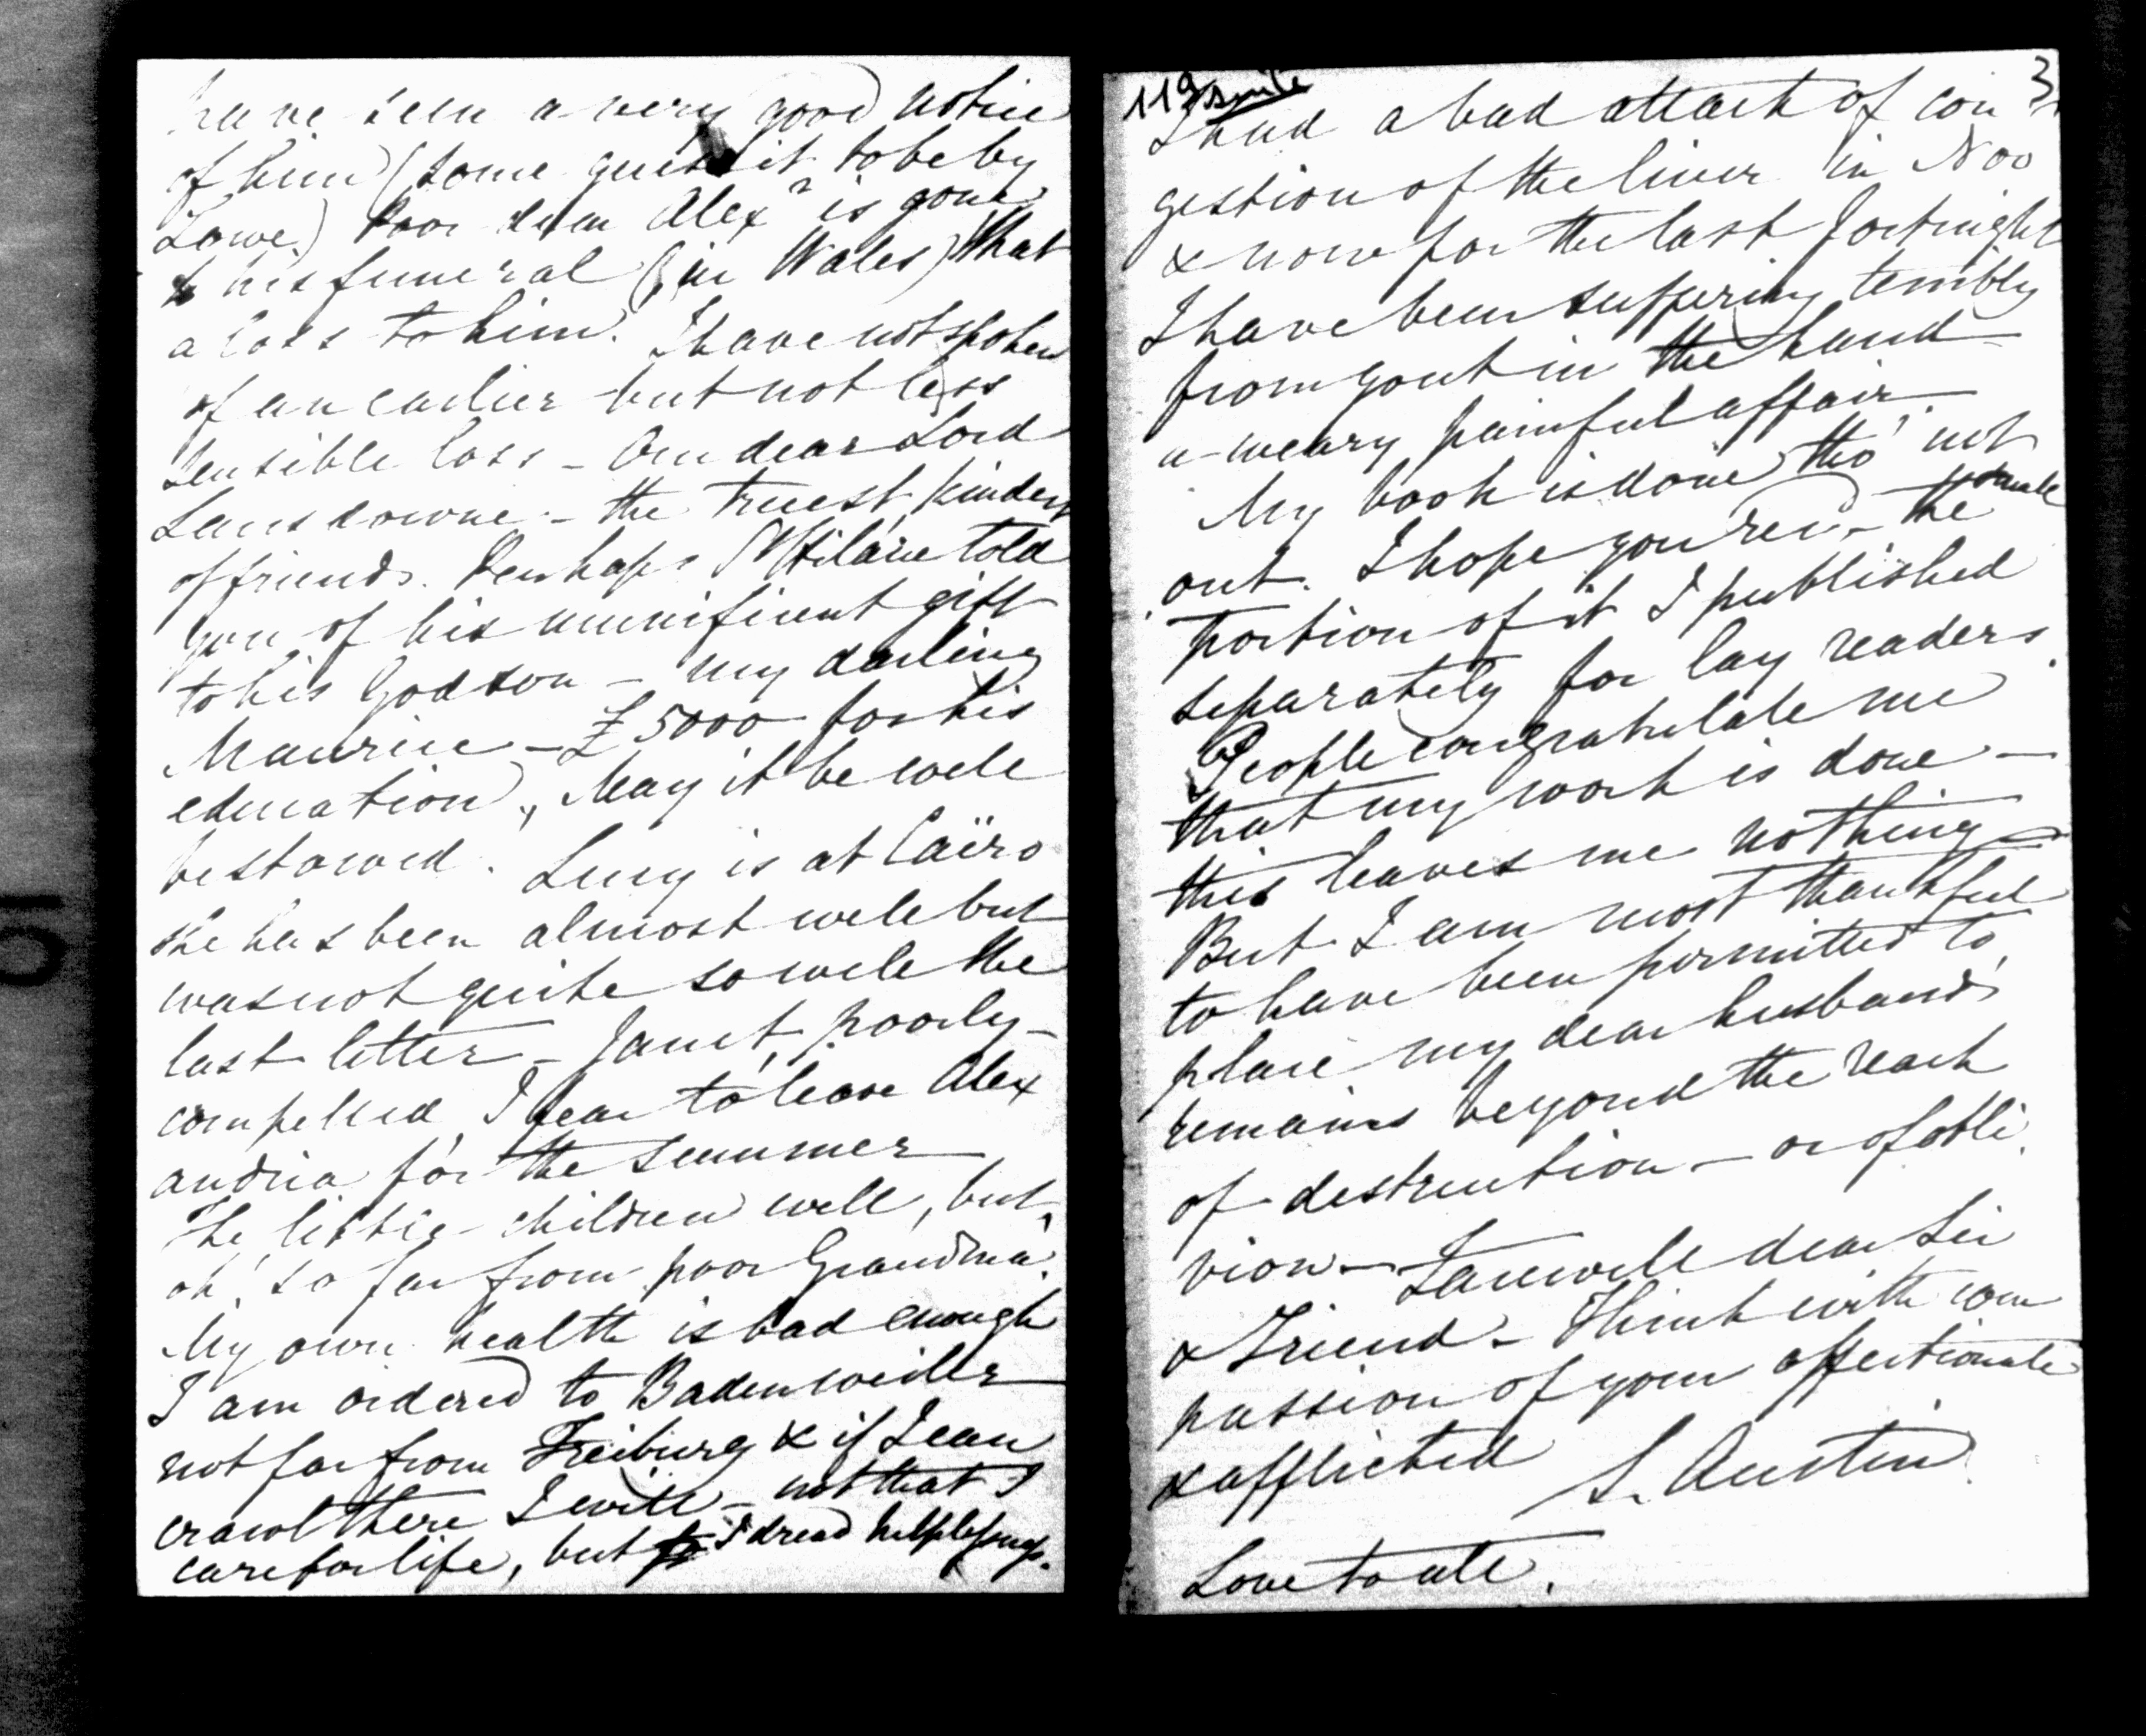 have seen a very good notice
of him (some guess it to be by
Lowe.) Poor dear Alexr is gone
to his funeral (in Wales) What
a loss to him. I have not spoken
of an earlier but not less
sensible loss – Our dear Lord
Lansdowne – the truest, kindest
of friends. Perhaps St Hilaire told
you of his munificent gift
to his Godson – my darling
Maurice – £5000 for his
education. May it be well
bestowed. Lucy is at Caïro
she has been almost well but
was not quite so well the
last letter – Janet, poorly –
compelled, I fear to leave Alex
andria for the summer
The little children well, but,
oh! so far from poor Grandma.
My own health is bad enough
I am ordered to Badenweiler
not far from Freiburg & if I can
crawl there I will – not that I
care for life, but I dread helplessness.
119 suite
3
I had a bad attack of con
gestion of the liver in Nov
& now for the last fortnight
I have been suffering terribly
from gout in the hand
a weary painful affair.
My book is done, tho' not
out. I hope you recd the small
portion of it I published
separately for lay readers.
People congratulate me
that my work is done –
this leaves me nothing –
But I am most thankful
to have been permitted to
place my dear husband's
remains beyond the reach
of destruction – or of obli
vion – Farewell dear Sir
& Friend – Think with com
passion of your affectionate
& afflicted S. Austin
Love to all.